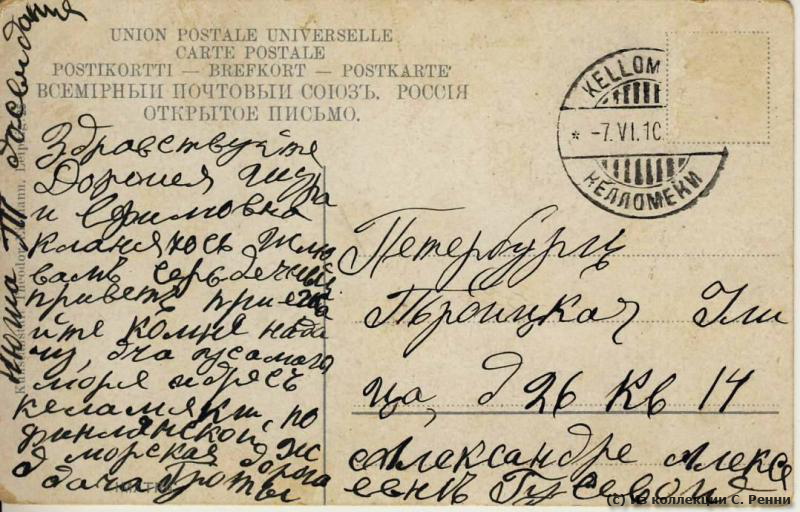 UNION POSTALE UNIVERSELLE
CARTE POSTALE
POSTIKORTTI — BREFKORT — POSTKARTE
ВСЕМІРНЫЙ ПОЧТОВЫЙ СОЮЗЪ. РОССІЯ
ОТКРЫТОЕ ПИСЬМО.
KELLOM
* -7.VI.10
КЕЛЛОМЕКИ
Здравствуйте
Дорогая Шура
и
кланяюсь и шлю
вамъ сердечный
приветъ приезжа
йте комне нада
чу, дча усамого
моря адресъ
келамяки, по
финлянской Ж
д морская дорога
дача Гроты
досвидание
Петербургъ
Търоицкая Ули
ца, д 26 Кв 14
Александре Алекс
еевнъ Гусевой
(c) Из коллекции С. Ренни